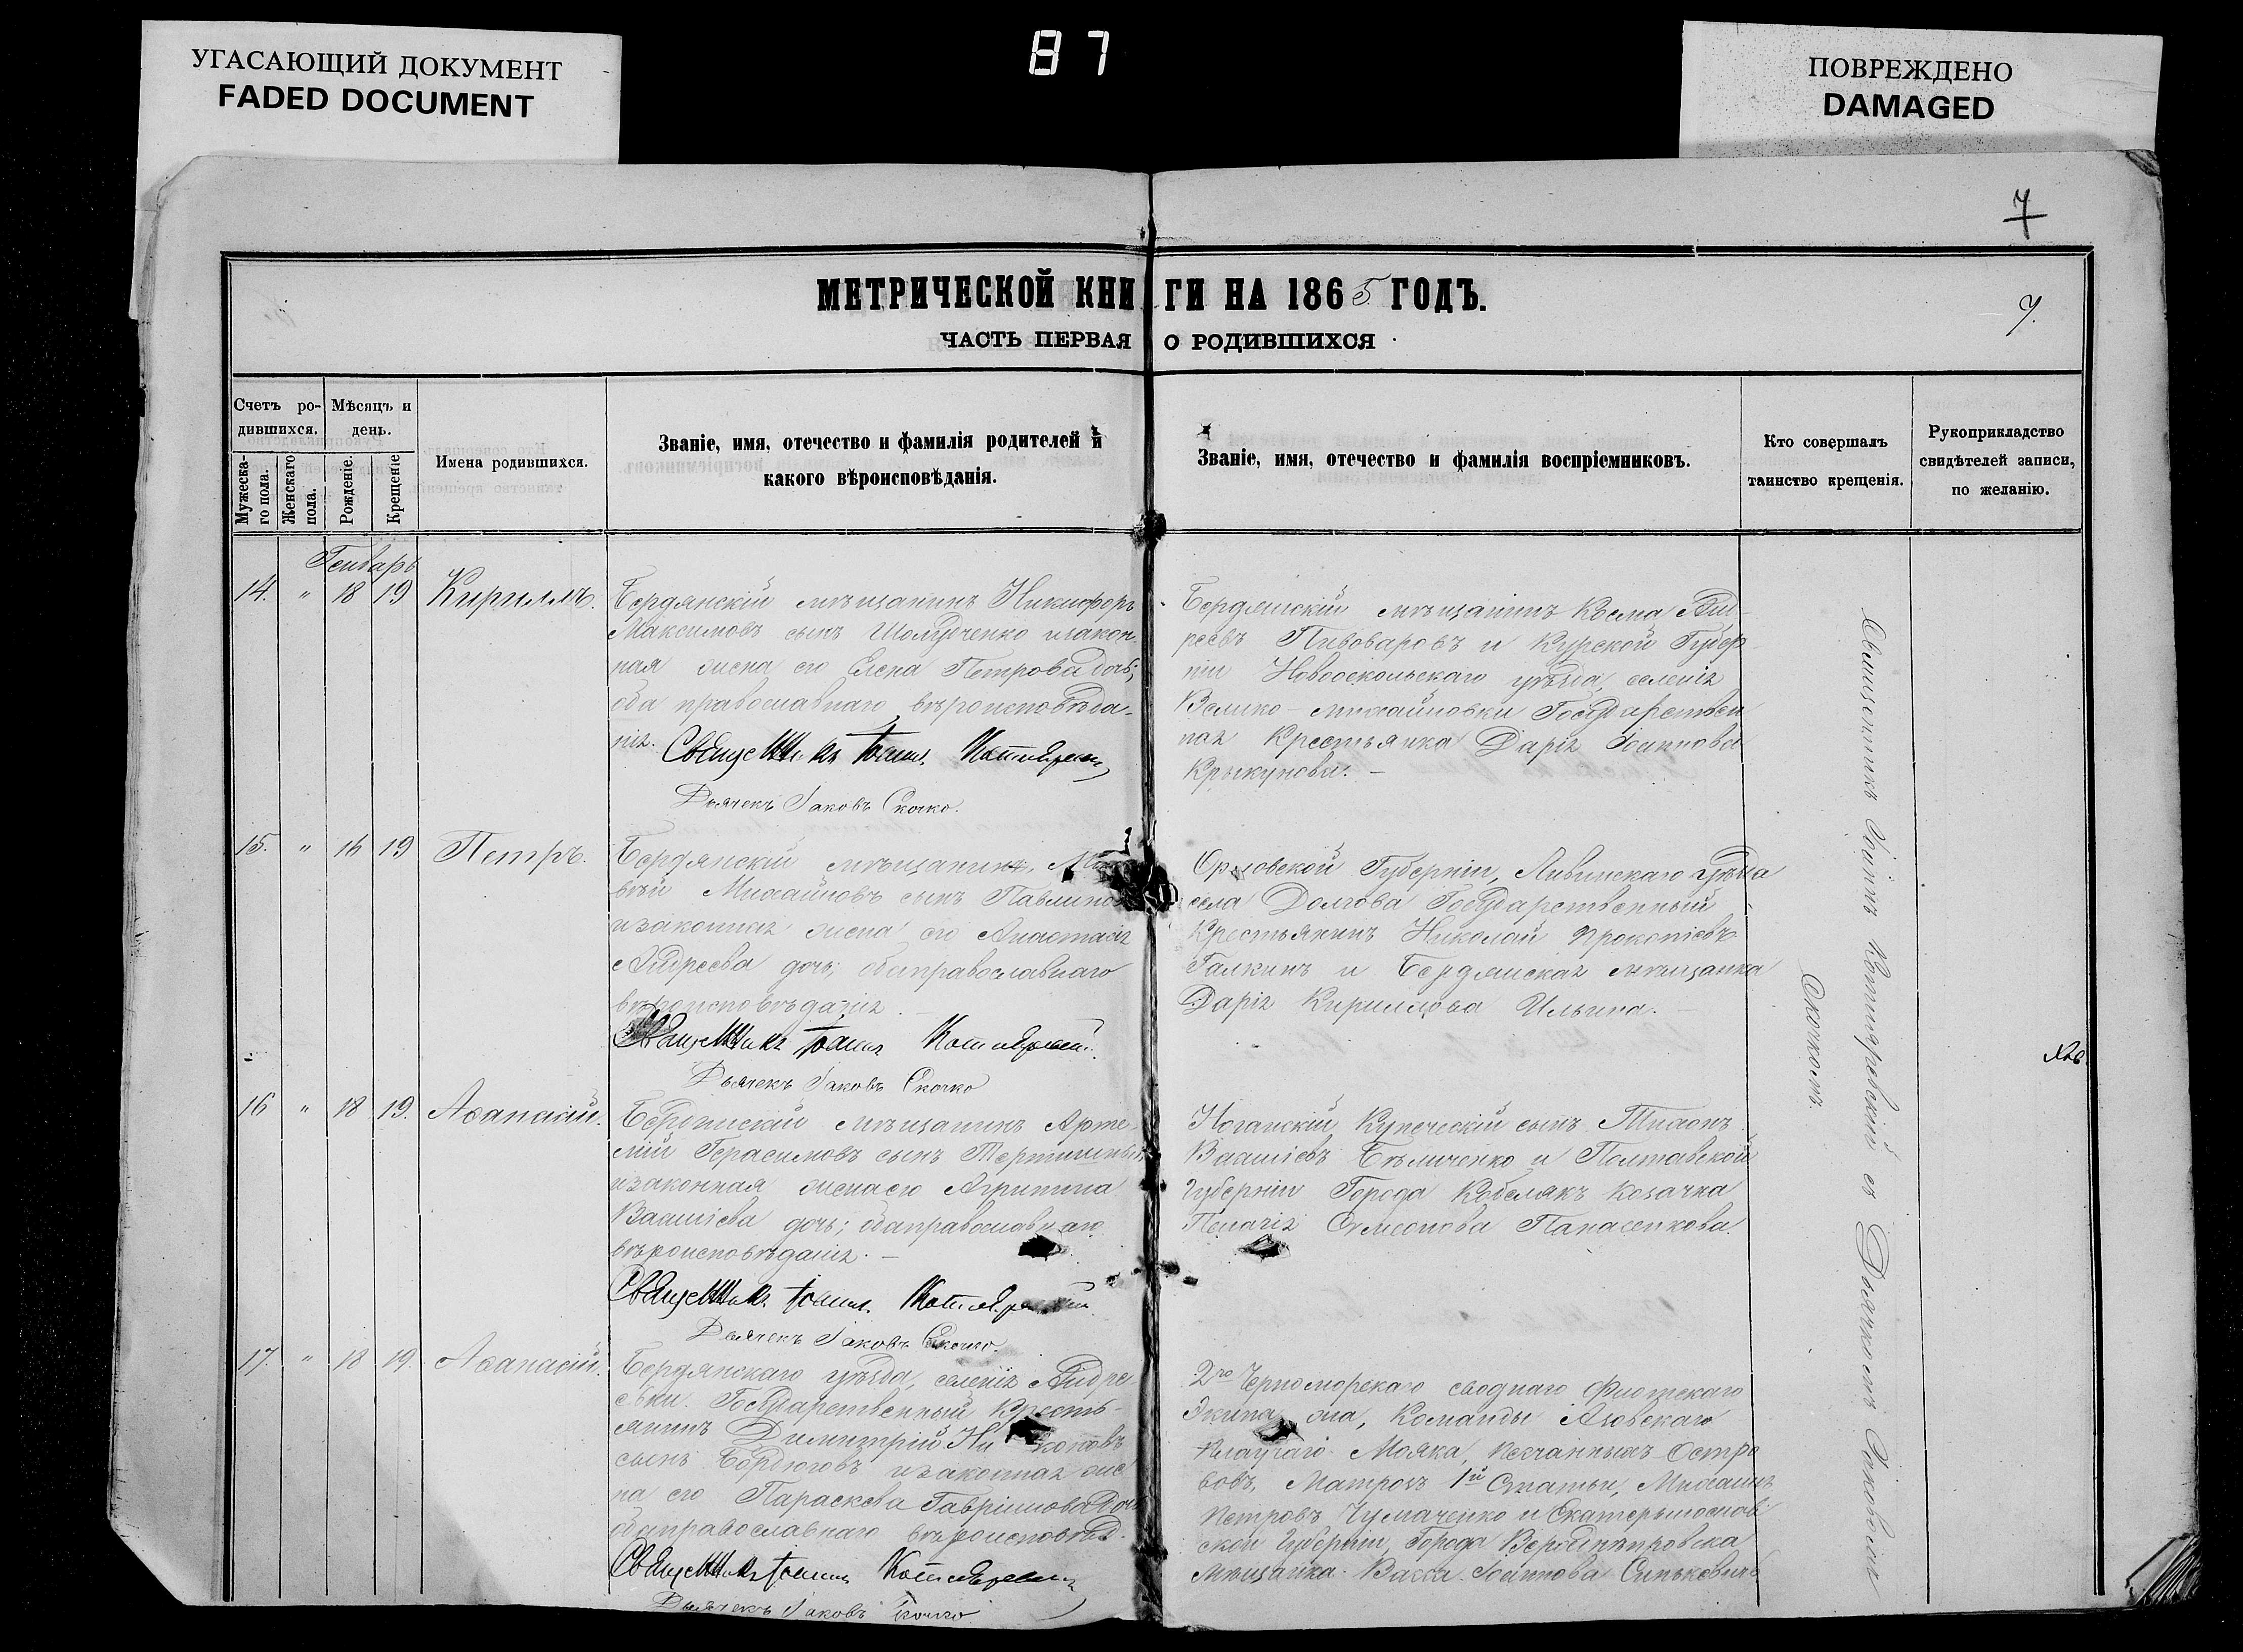 УГАСАЮЩИЙ ДОКУМЕНТ
FADED DOCUMENT
87
ПОВРЕЖДЕНО
DAMAGED
7
МЕТРИЧЕСКОЙ КНИГИ НА 1865 ГОДЪ.
7.
ЧАСТЬ ПЕРВАЯ О РОДИВШИХСЯ
Счетъ ро-
дившихся.
Мужеска-
го пола.
Женскаго
пола.
Мѣсяцъ и
день.
Рожденіе.
Крещеніе
Имена родившихся.
Званіе, имя, отечество и фамилія родителей и
какого вѣроисповѣданія.
Званіе, имя, отечество и фамилія воспріемниковъ.
Кто совершалъ
таинство крещенія.
Рукоприкладство
свидѣтелей записи,
по желанію.
Генварь
14. " 18 19 Кириллъ.
Бердянскій мѣщанинъ Никифоръ
Максимовъ сынъ изакон
ная жена его Елена Петрова дочь;
оба православнаго вѣроисповѣда-
нія. Священникъ Іоаннъ
Дьячекъ Іаковъ Скочко.
Бердянскій мѣщанинъ Косма Анд-
реевъ Пивоваровъ и Курской Губер
ніи Новооскольскаго уѣзда, селенія
Велико-михайловки Государствен
ная Крестьянка Дарія Іоаннова
Крыкунова. —
15. " 16 19 Петръ.
Бердянскій мѣщанинъ,
вѣй Михайловъ сынъ
изаконная жена его Анастасія
Андреева дочь; обаправославнаго
вѣроисповѣданія. —
Священникъ Іоаннъ
Дьячекъ Іаковъ Скочко
Орловской Губерніи, Ливинскаго уѣзда
села Долгова Государственный
Крестьянинъ Николай Прокопіевъ
Галкинъ и Бердянская мѣщанка
Дарія Кириллова Ильина. —
16 " 18 19. Аѳанасій.
мѣщанинъ Арте-
мій Герасимовъ сынъ
изаконная женаего Агрипина
Василіева дочь; обаправославнаго
вѣроисповѣданія. —
Священникъ Іоаннъ
Дьячекъ Іаковъ Скочко.
Ногайскій Купеческій сынъ
Василіевъ Бѣличенко и Полтавской
Губерніи Города Кобелякъ Козачка
Пелагія Симеонова Панасенкова.
17. " 18 19. Аѳанасій.
Бердянскаго уѣзда, селенія Андре
евки. Государственный Кресть-
янинъ Димитрій
сынъ Бордюговъ изаконная же
на его Параскева Гавріилова дочь
обаправославнаго вѣроисповѣд.
Священникъ Іоаннъ
Дьячекъ Іаковъ Скочко
2го Черноморскаго своднаго Флотскаго
Экипажа, Команды Азовскаго
Плаучаго Маяка, Песчанныхъ Остро
вовъ, Матрозъ 1й Статьи, Михаилъ
Петровъ Чумаченко и Екатеринослав
ской Губерніи, Города Верходнѣпровска
Мѣщанка Васса Іоаннова
Священникъ Іоаннъ Котляревскій съ Дьячкомъ Іаковомъ
Скочкомъ.